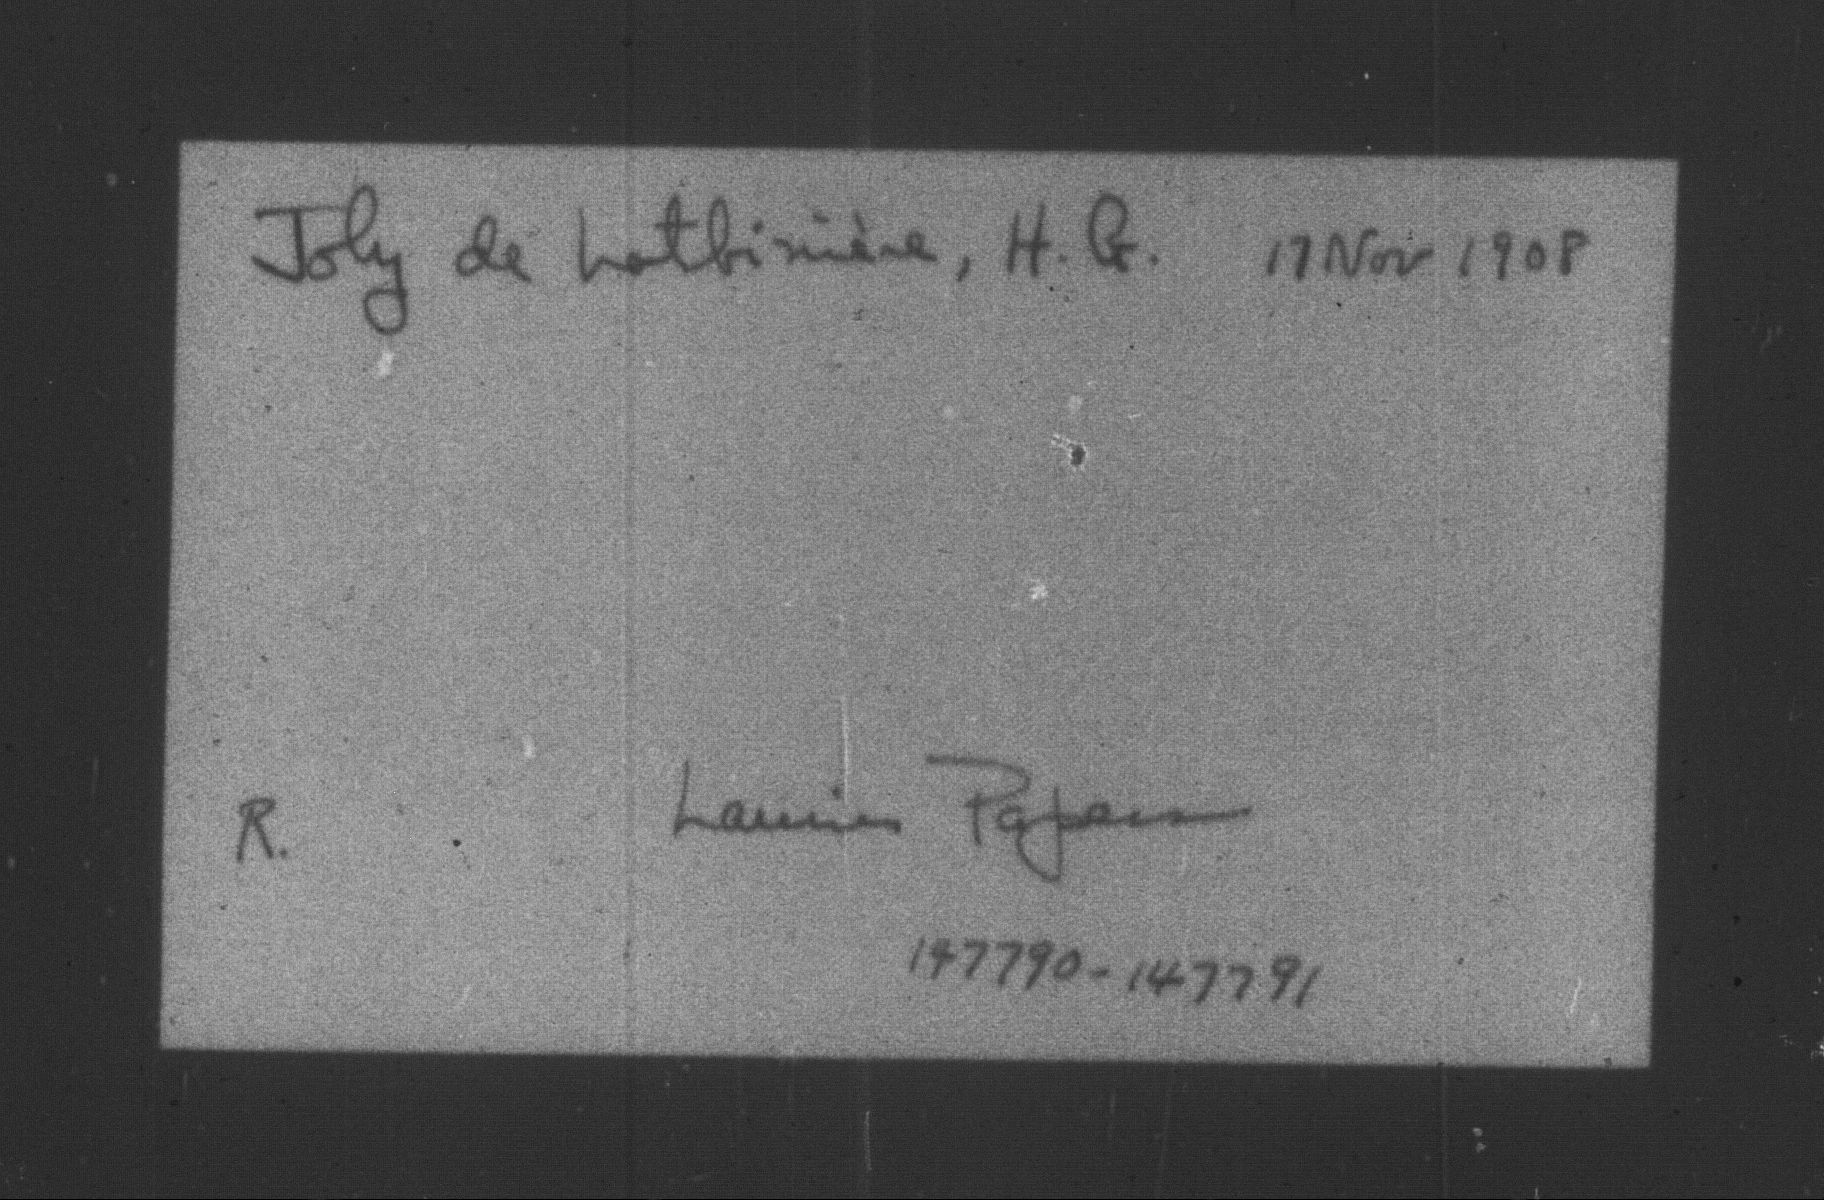 Joly de Lotbinière, H. G. 17 Nov 1908
R. Laurier Papers
147790-147791